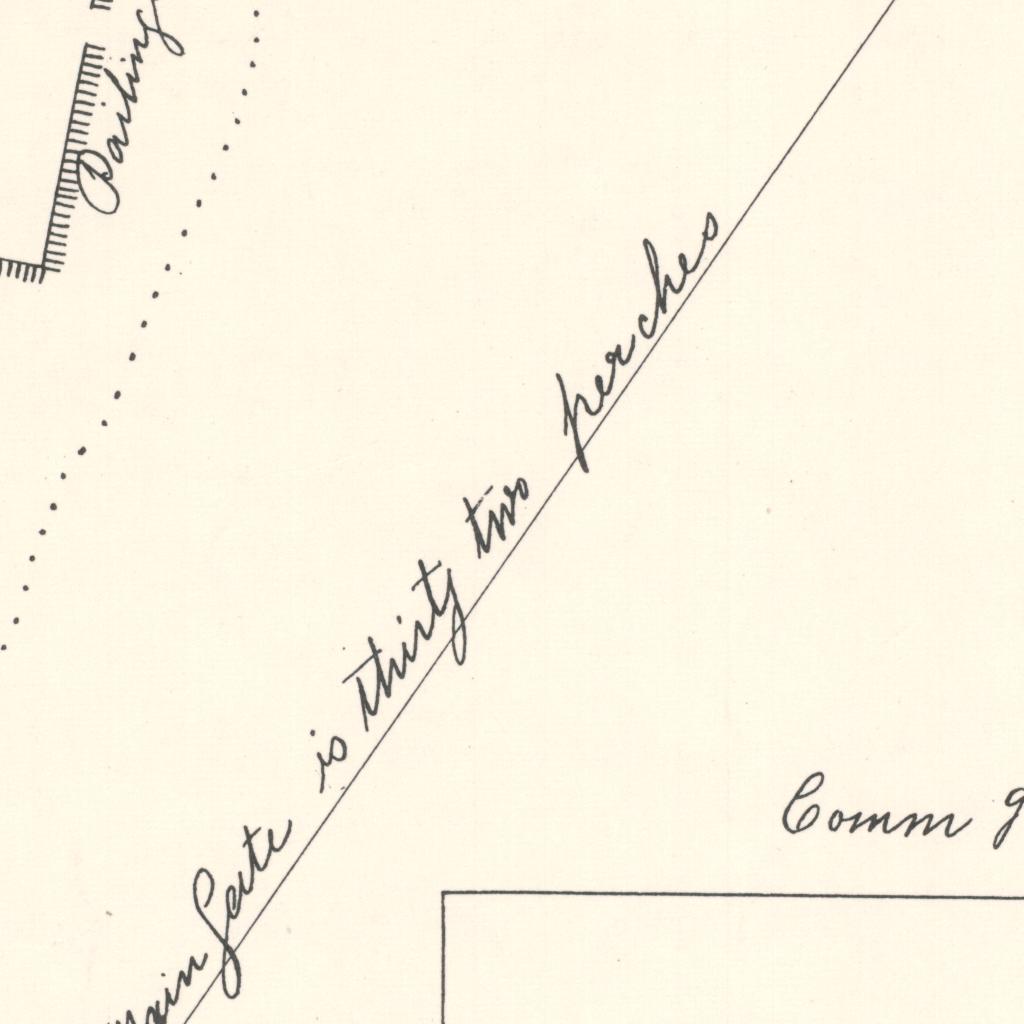 Pailing
main Gate is thirty two perches
Comm